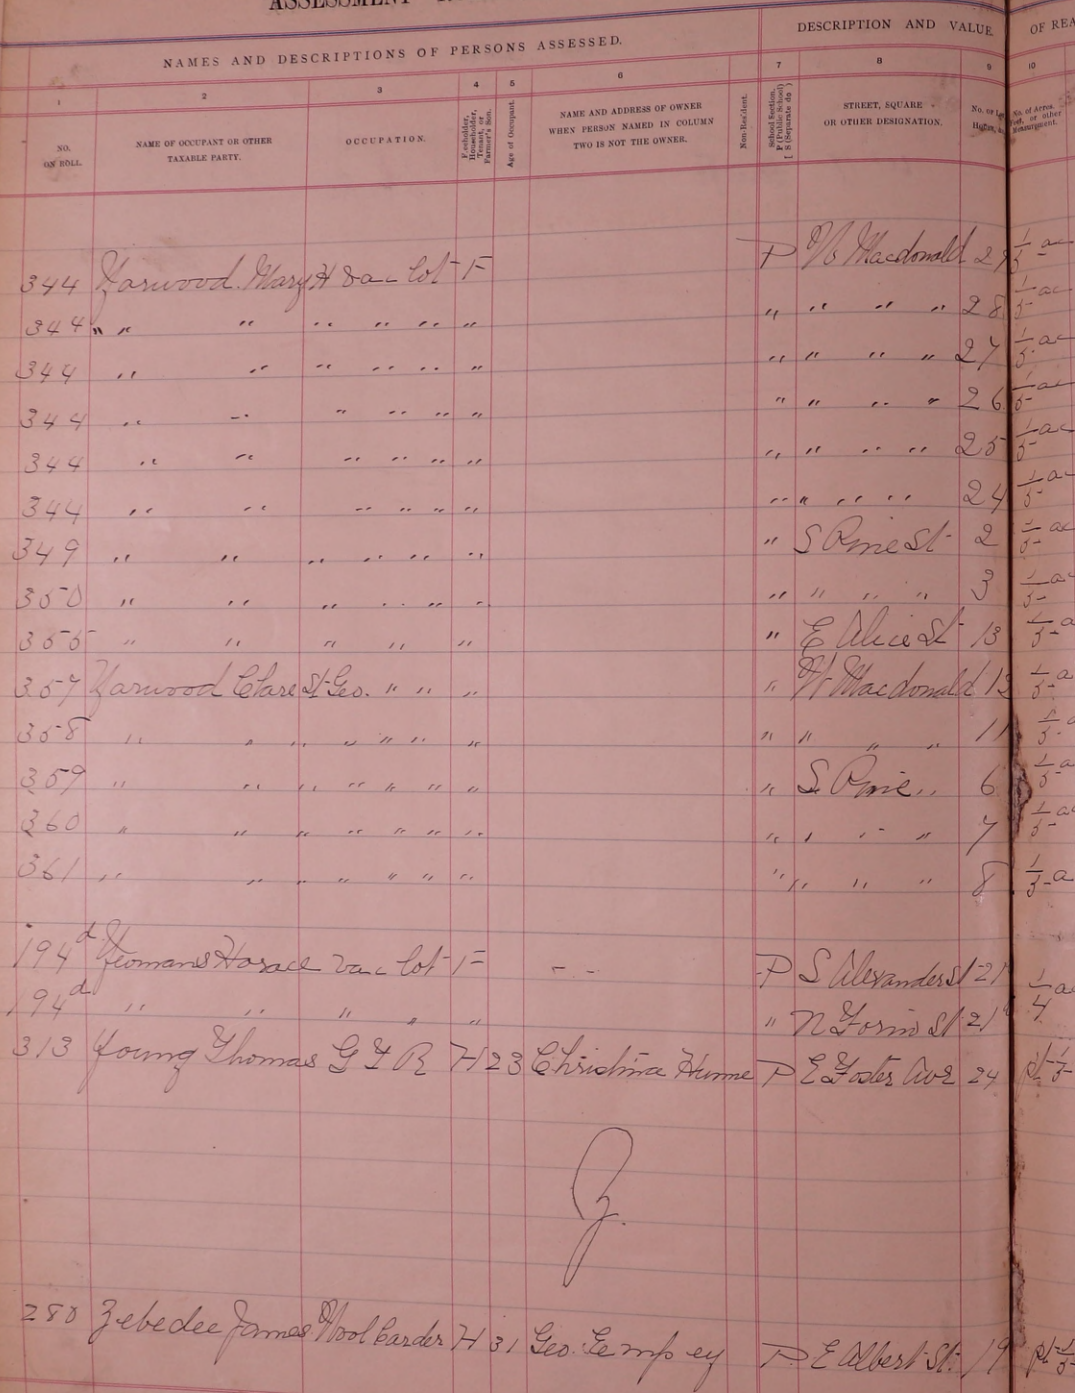 ASSESSMENT
NAMES AND DESCRIPTIONS OF PERSONS ASSESSED.
DESCRIPTION AND VALUE
OF REA
1 2 3 4 5 6 7 8 9 10
NO. ON ROLL.
NAME OF OCCUPANT OR OTHER TAXABLE PARTY.
OCCUPATION.
Freeholder, Householder, Tenant, or Farmer's Son.
Age of Occupant.
NAME AND ADDRESS OF OWNER WHEN PERSON NAMED IN COLUMN TWO IS NOT THE OWNER.
Non-Resident.
School Section, P (Public School) [ S (Separate do )
STREET, SQUARE OR OTHER DESIGNATION.
No. of Acres, Feet, or other Measurement.
344 Yarwood Mary H Vac lot F P W Macdonald 29 1/5 ac
344 " " " " " " " " " " " 28 1/5 ac
344 " " " " " " " " " " 27 1/5 ac
344 " " " " " " " " " " 26 1/5 ac
344 " " " " " " " " " " 25 1/5 ac
344 " " " " " " " " " " " 24 1/5 ac
349 " " " " " " " " S Pine St 2 1/5 ac
350 " " " " " " " " " " 3 1/5 a
355 " " " " " " E Alice St 13 1/5 a
357 Yarwood Clare St Geo. " " " " W Macdonald 13 1/5 a
358 " " " " " " " " " " " 11 1/5 a
359 " " " " " " " " S Pine " 6 1/5 a
360 " " " " " " " " " " " 7 1/5 a
361 " " " " " " " " " " " 8 1/5 a
194d Yeomans Horace Vac lot F " " P S Alexander St 21 1/4 a
194d " " " " " " N Forin St 21
313 Young Thomas G T R H 23 Christina Hume P E Foster Ave 24 pt 1/5
Z.
280 Zebedee James Wool Carder H 31 Geo. Gempey P E Albert St. 19 pt 1/5